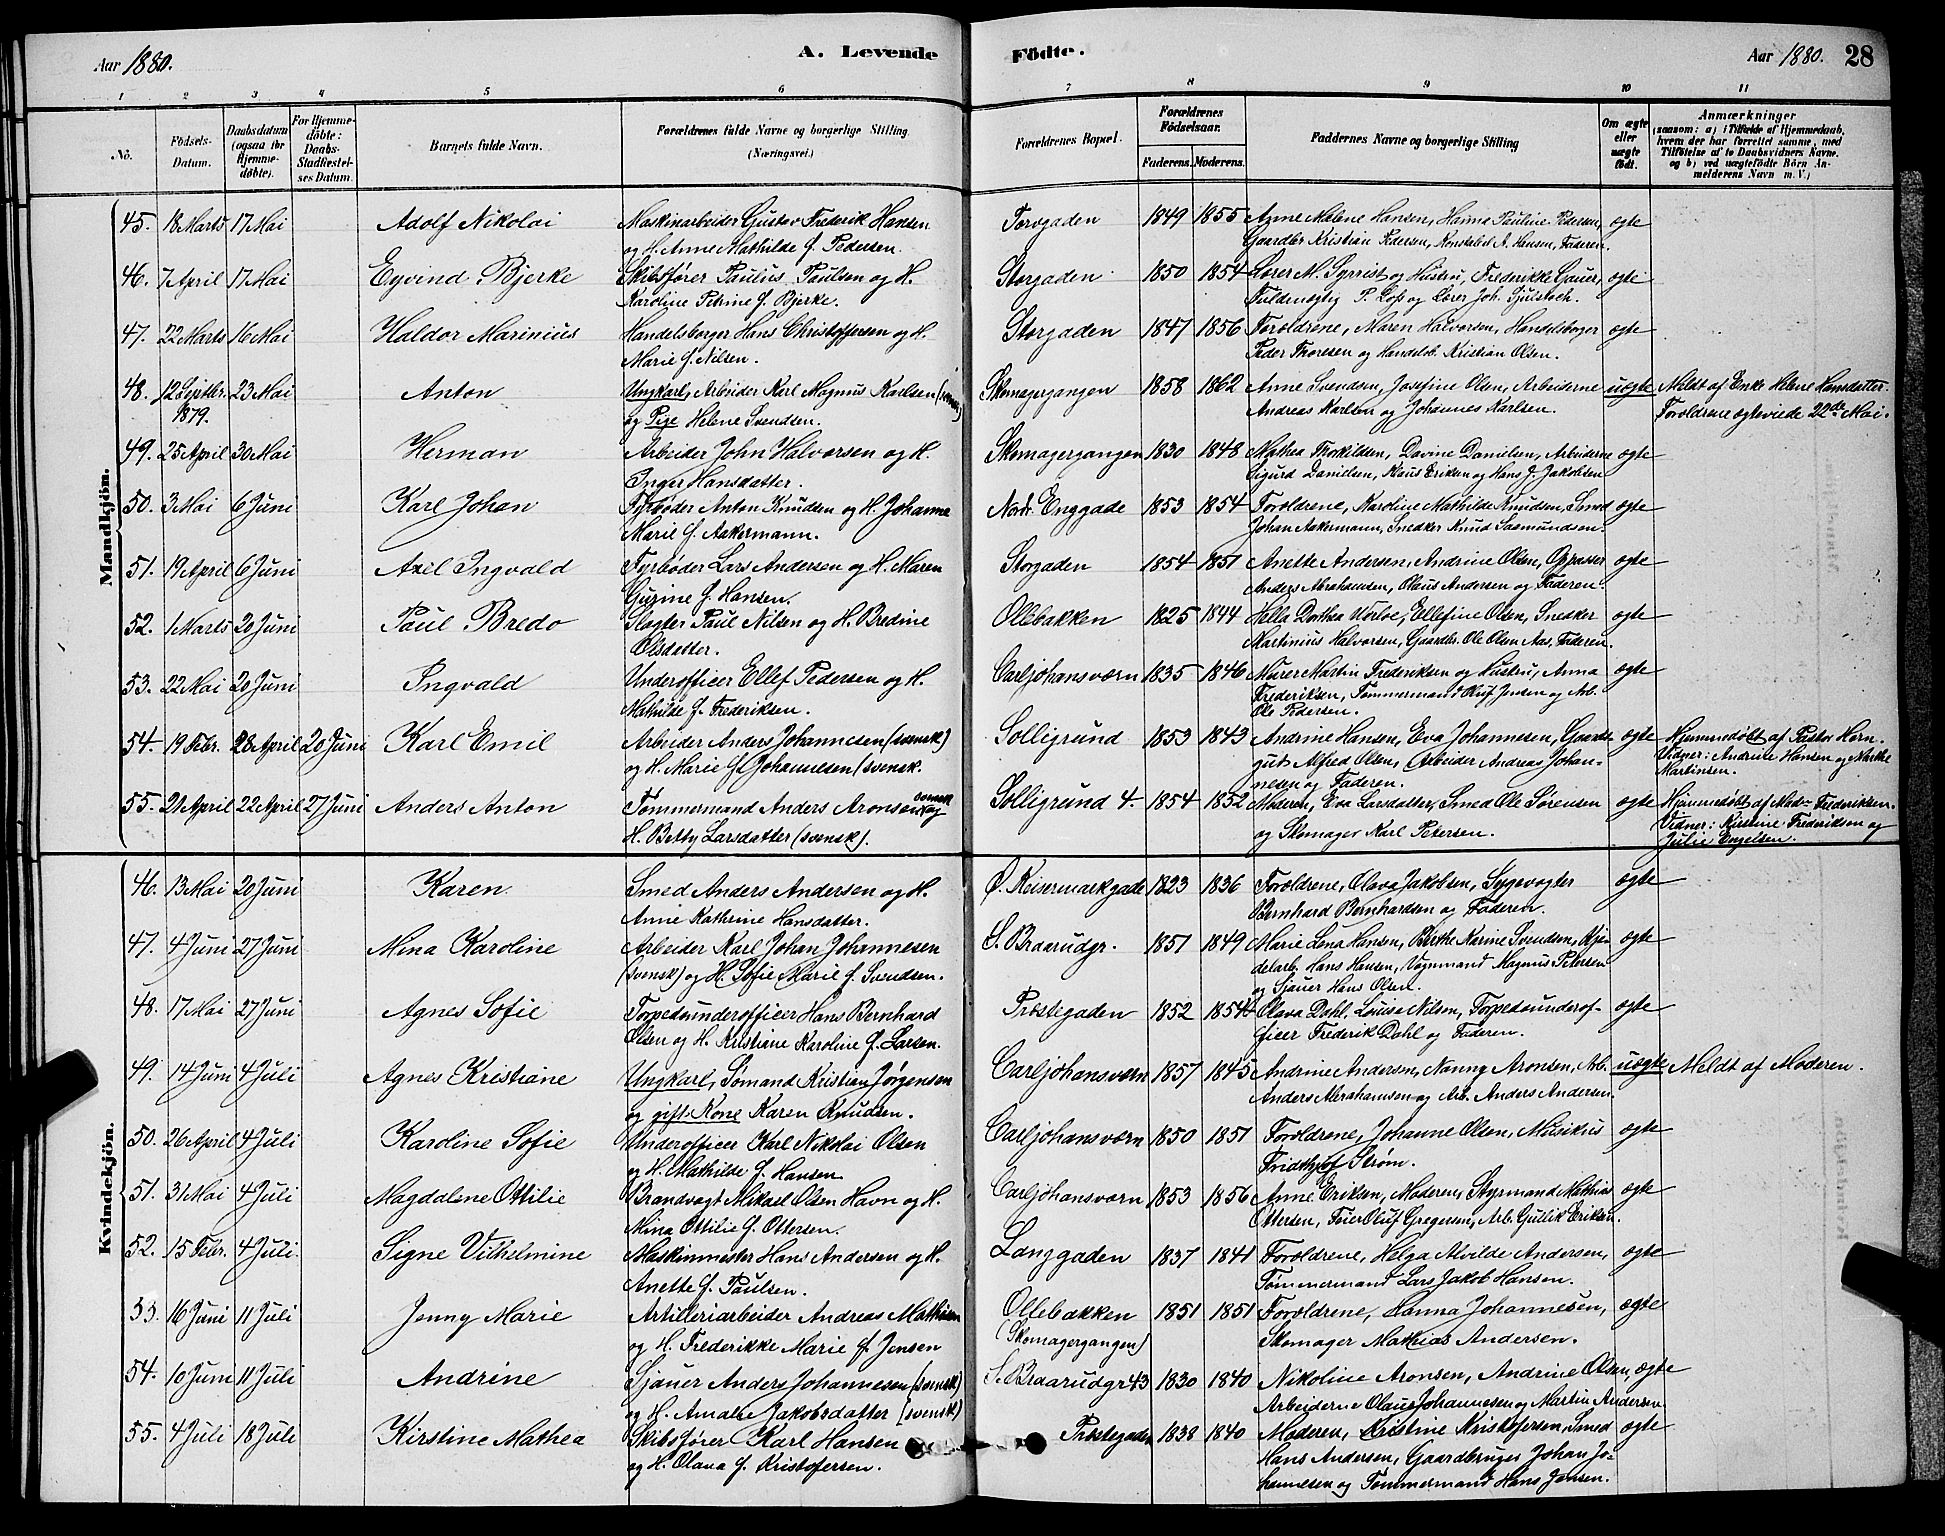 Aar 1880. A. Levende Födte. Aar 1880. 28
1 2 3 4 5 6 7 8 9 10 11
No. Födsels-Datum. Daabsdatum (ogsaa for Hjemme-døbte). For Hjemme-døbte: Daabs-Stadfæstel-ses Datum. Barnets fulde Navn. Forældrenes fulde Navne og borgerlige Stilling. (Næringsvei.) Forældrenes Bopæl. Forældrenes Födselsaar. Faderens. Moderens. Faddernes Navne og borgerlige Stilling Om ægte eller uægte født. Anmærkninger (saasom: a) i Tilfælde af Hjemmedaab, hvem der har forrettet samme, med Tilføielse af to Daabsvidners Navne. og b) ved uægtefødte Börn An-melderens Navn m. V.)
Mandkjön.
45. 18 Marts 17 Mai Adolf Nikolai Maskinarbeider Gustav Frederik Hansen Torvgaden 1849 1855 Anne Malene Hansen, Hanna Pauline Pedersen, ægte
og H. Anne Mathilde f. Pedersen. Gaardbr Kristian Pedersen, Konstabel A. Hansen, Faderen.
46. 7 April 17 Mai Eyvind Bjerke Skibsfører Paulus Paulsen og H. Storgaden 1850 1854 Lærer M. Syrrist og Hustru, Frederikke Gauer, ægte
Karoline Petrine f. Bjerke. Fuldmægtig P. Lofs og Lærer Joh. Gjulstock.
47. 22 Marts 16 Mai Haldor Marinius Handelsborger Hans Christoffersen og H. Storgaden 1847 1856 Forældrene, Maren Halvorsen, Handelsborger ægte
Marie f. Nilsen. Peder Thoresen og Handelsb. Kristian Olsen.
48. 12 Septbr. 23 Mai Anton Ungkarl, Arbeider Karl Magnus Karlsen (svensk) Skomagergangen 1858 1862 Anne Svendsen, Josefine Olsen, Arbeiderne uægte Meldt af Enke Helene Hansdatter.
1879. og Pige Helene Svendsen. Andreas Karlsen og Johannes Karlsen. Forældrene ægteviede 22de Mai.
49. 25 April 30 Mai Herman Arbeider John Halvorsen og H. Skomagergangen 1830 1848 Mathea Thorkildsen, Davine Danielsen, Arbeiderne ægte
Inger Hansdatter. Sigurd Danielsen, Klaus Eriksen og Hans J. Jakobsen
50. 3 Mai 6 Juni Karl Johan Fyrbøder Anton Knudsen og H. Johanne Nord. Enggade 1853 1854 Forældrene, Karoline Mathilde Knudsen, Smed ægte
Marie f. Aakermann. Johan Aakermann, Snedker Knud Sæmundsen.
51. 19 April 6 Juni Axel Ingvald Fyrbøder Lars Andersen og H. Maren Storgaden 1854 1851 Anette Andersen, Andrine Olsen, Oppasser ægte
Gurine f. Hansen. Anders Abrahamsen, Olaus Andersen og Faderen.
52. 1 Marts 20 Juni Paul Bredo Slagter Paul Nilsen og H. Bredine Ollebakken 1825 1844 Hella Dorthea Vorloe, Ellefine Olsen, Snedker ægte
Olsdatter. Martinius Halvorsen, Gaardbr. Ole Olsen Aas, Faderen.
53. 22 Mai 20 Juni Ingvald Underofficer Ellef Pedersen og H. Carljohansværn 1835 1846 Murer Martin Frederiksen og Hustru, Anna ægte
Mathilde f. Frederiksen. Frederiksen, Tømmermand Oluf Jensen og Arb.
Ole Pedersen.
54. 19 Febr. 28 April 20 Juni Karl Emil Arbeider Anders Johannesen (svensk) Solligrund 1853 1843 Andrine Hansen, Eva Johannesen, Gaards- ægte Hjemmedøbt af Pastor Horn.
og H. Marie f. Johannesen (svensk. gut Alfred Olsen, Arbeider Andreas Johan- Vidner: Andrine Hansen og Marthe
nesen og Faderen. Martinsen.
55. 21 April 22 April 27 Juni Anders Anton Tømmermand Anders Aronsen svensk og Solligrund 4. 1854 1852 Moderen, Eva Larsdatter, Smed Ole Sørensen ægte Hjemmedøbt af Mad= Frederiksen.
H. Betty Larsdatter (svensk). og Skomager Karl Petersen. Vidner: Kirstine Frederiksen og
Julie Engelsen.
Kvindekjön.
46. 13 Mai 20 Juni Karen Smed Anders Andersen og H. Ø. Keisermarkgade 1823 1836 Forældrene, Olava Jakobsen, Sygevogter ægte
Anne Kathrine Hansdatter. Bernhard Bernhardsen og Faderen.
47. 4 Juni 27 Juni Mina Karoline Arbeider Karl Johan Johannesen S. Braarudgr. 1851 1849 Marie Lena Hansen, Birthe Karine Svendsen, Kje- ægte
(svensk) og H. Sofie Marie f. Svendsen. delarb. Hans Hansen, Vognmand Magnus Petersen
og Sjauer Hans Olsen.
48. 17 Mai 27 Juni Agnes Sofie Torpedounderofficer Hans Bernhard Præstegaden 1852 1854 Olava Dahl, Louise Nilsen, Torpedounderof- ægte
Olsen og H. Kristiane Karoline f. Larsen. ficer Frederik Dahl og Faderen.
49. 14 Juni 4 Juli Agnes Kristiane Ungkarl, Sømand Kristian Jørgensen Carljohansværn 1857 1845 Andrine Andersen, Nanny Aronsen, Arb. uægte Meldt af Moderen.
og gift Kone Karen Knudsen. Anders Abrahamsen og Arb. Anders Andersen.
50. 26 April 4 Juli Karoline Sofie Underofficer Karl Nikolai Olsen Carljohansværn 1850 1851 Forældrene, Johanne Olsen, Musikus ægte
og H. Mathilde f. Hansen Fridthjof Strøm.
51. 31 Mai 4 Juli Magdalene Ottilie Brandvagt Mikael Olsen Havn og H. Carljohansværn 1853 1856 Anne Eriksen, Moderen, Styrmand Mathias ægte
Mina Ottilie f. Ottersen. Ottersen, Feier Oluf Gregersen, Arb. Gulik Eriksen.
52. 15 Febr. 4 Juli. Signe Vilhelmine Maskinmester Hans Andersen og H. Langgaden 1837 1841 Forældrene, Helga Alvilde Andersen, ægte
Anette f. Paulsen. Tømmermand Lars Jakob Hansen.
53. 16 Juni 11 Juli Jenny Marie Artilleriarbeider Andreas Mathisen Ollebakken 1851 1851 Forældrene, Hanna Johannesen, ægte
og H. Frederikke Marie f. Jensen (Skomagergangen) Skomager Mathias Andersen.
54. 10 Juni 11 Juli Andrine Sjauer Anders Johannesen (svensk) S. Braarudgr 43 1830 1840 Nikoline Aronsen, Andrine Olsen, ægte
og H. Amalie Jakobsdatter (svensk) Arbeiderne Olaus Johannesen og Martin Andersen.
55. 4 Juli 18 Juli Kirstine Mathea Skibsfører Karl Hansen Præstegaden 1838 1840 Moderen, Kristine Kristofersen, Smed ægte
og H. Olava f. Kristofersen. Hans Andersen, Gaardbruger Johan Jo-
hannesen og Tømmermand Hans Jensen.